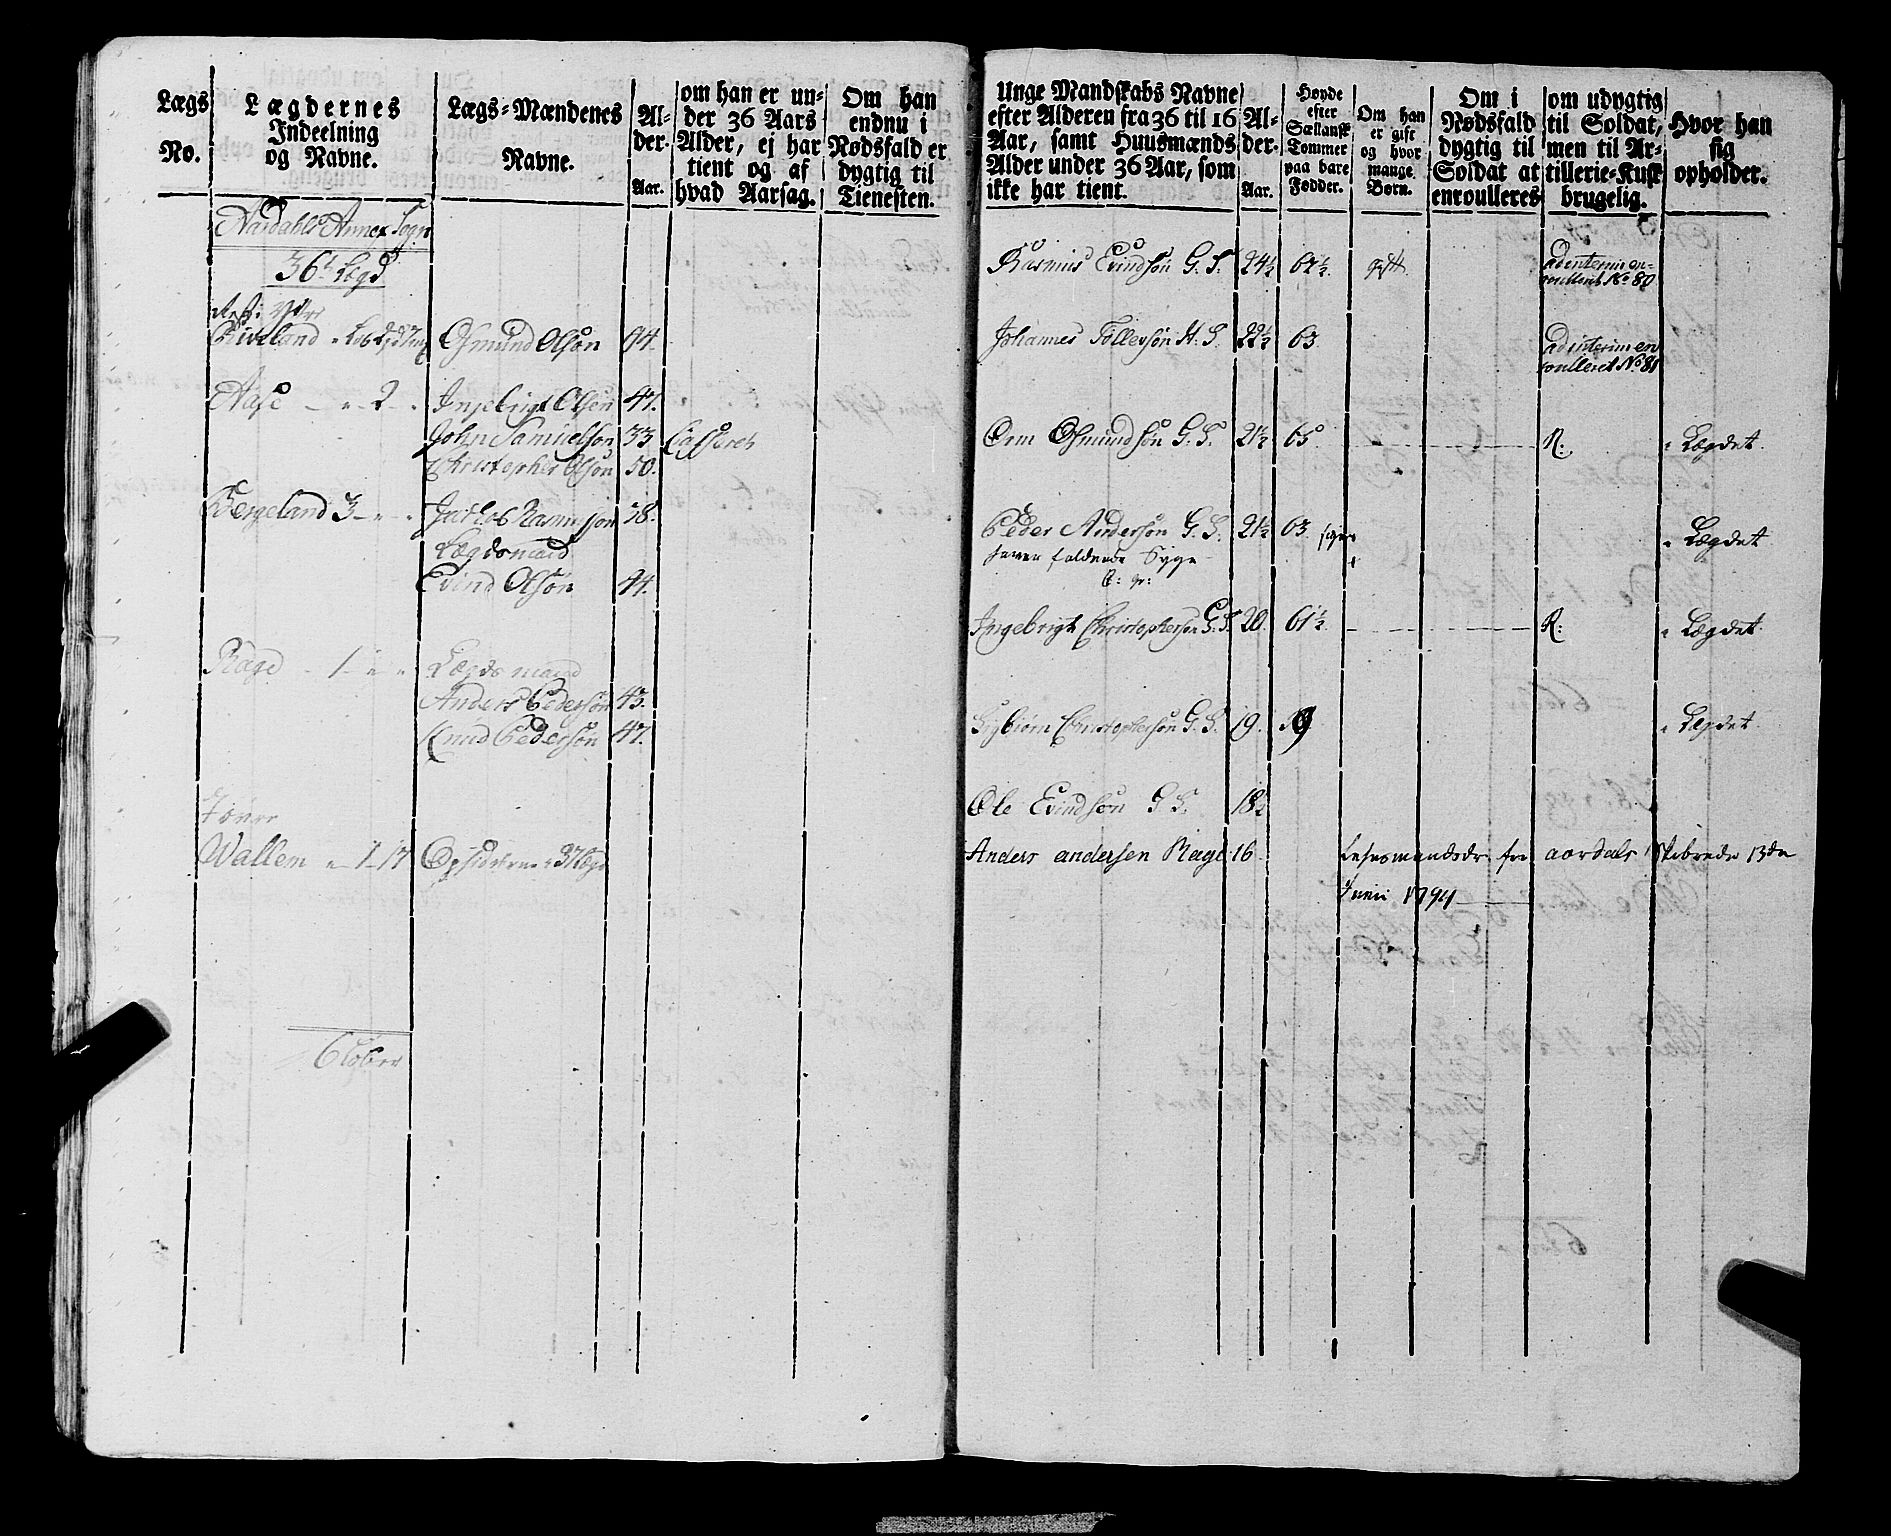 Lægs
No.
Lægdernes
Indeelning
og Navne.
Lægs-Mændenes
Navne.
Al-
der.
Aar.
om han er un-
der 36 Aars
Alder, ej har
tient og af
hvad Aarsag.
Om han
endnu i
Nødsfald er
dygtig til
Tienesten.
Aardahls Annex Sogn
36te Lægd
Osmund Olsøn 94.
Aase - " - 2 - " Ingebrigt Olsøn 47.
John Samuelson 33 Casseret
Christopher Olsøn 50.
Bergeland 3 - " - " Rasmusson 38.
Lægdsmand
Evind Olsøn 44.
Rage - 1 - " - " Lægdsmand
Anders Pedersøn 43.
Knud Pedersøn 47.
Wallem
Unge Mandskabs Navne
efter Alderen fra 36 til 16
Aar, samt Huusmænds
Alder under 36 Aar, som
ikke har tient.
Al-
der.
Aar.
Høyde
efter
Sællansk
Tommer
paa bare
Fødder.
Om han
er gift
og hvor
mange
Børn.
Om i
Nødsfald
dygtig til
Soldat at
enroulleres
om udygtig
til Soldat,
men til Ar-
tillerie-Kusk
brugelig.
Hvor han
sig
opholder.
Rasmus Evindsøn G. S. 24½ gift ad interim en-
roulleret No 80
Johannes Tollefsøn H. S. 22½ 63 ad interim en
roulleret No 81
Orm Osmundsøn G. S. 21½ 65 R. " Lægdet
Peder Andersøn G. S. 21½ 63 " Lægdet
haver faldende Syge
Ingebrigt Christophersøn G. S. 20. 61½ R: " Lægdet
Christophersøn G. S. 19. " Lægdet
Ole Evindsøn G S. 18½
Anders andersen Rage 16 fra aardals Skibrede 13de
Junii 1794